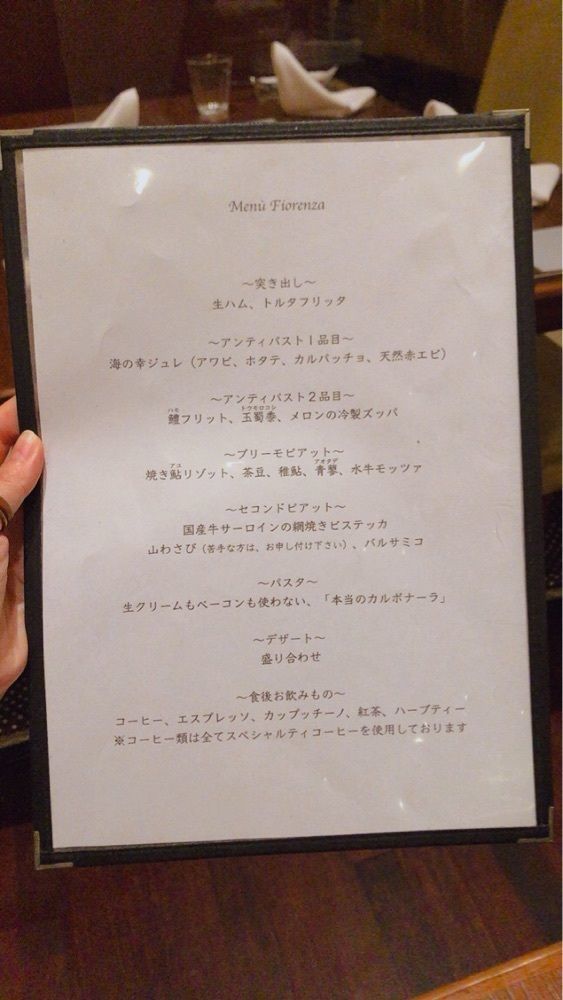 Menù Fiorenza
～突き出し～
生ハム、トルタフリッタ
～アンティパスト1品目～
海の幸ジュレ（アワビ、ホタテ、カルパッチョ、天然赤エビ）
～アンティパスト2品目～
ハモ トウモロコシ
鱧フリット、玉蜀黍、メロンの冷製ズッパ
～プリーモピアット～
アユ アオタデ
焼き鮎リゾット、茶豆、稚鮎、青蓼、水牛モッツァ
～セコンドピアット～
国産牛サーロインの網焼きビステッカ
山わさび（苦手な方は、お申し付け下さい）、バルサミコ
～パスタ～
生クリームもベーコンも使わない、「本当のカルボナーラ」
～デザート～
盛り合わせ
～食後お飲みもの～
コーヒー、エスプレッソ、カップッチーノ、紅茶、ハーブティー
※コーヒー類は全てスペシャルティコーヒーを使用しております